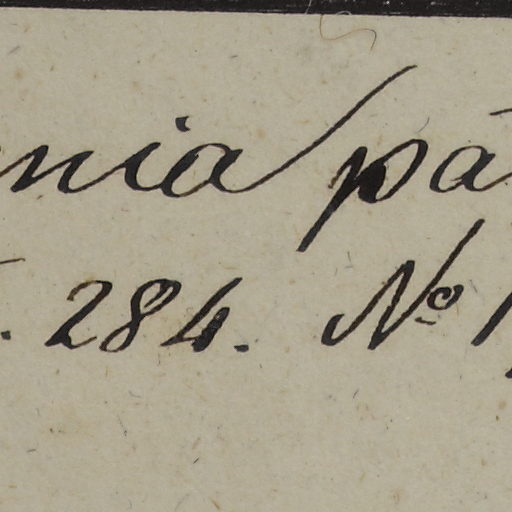 nia pa
. 284. No 1